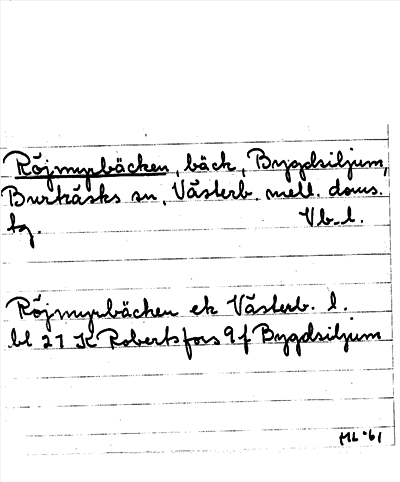 Röjmyrbäcken, bäck, Bygdsiljum,
Burträsks sn, Västerb. mell. doms.
tg. Vb. l.
Röjmyrbäcken ek Västerb. l.
bl 21 K Robertsfors 9f Bygdsiljum
ML-61